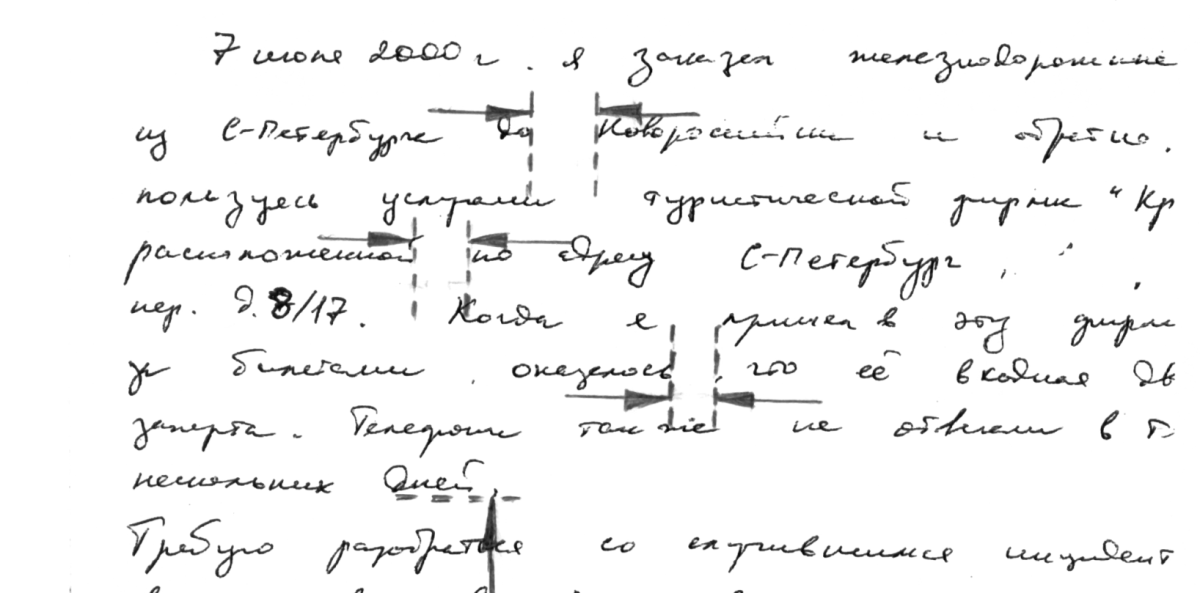 7 июня 2000 г. я заказал железнодорожные
из С-Петербурга до Новороссийска и обратно,
пользуясь услугами туристической фирмы "Кр
расположенной по адресу С-Петербург,
пер. д. 8/17. Когда я пришел в эту фирм
за билетами, оказалось, что её входная дв
заперта. Телефоны также не отвечали в т
нескольких дней.
Требую разобраться со случившимся инцидент